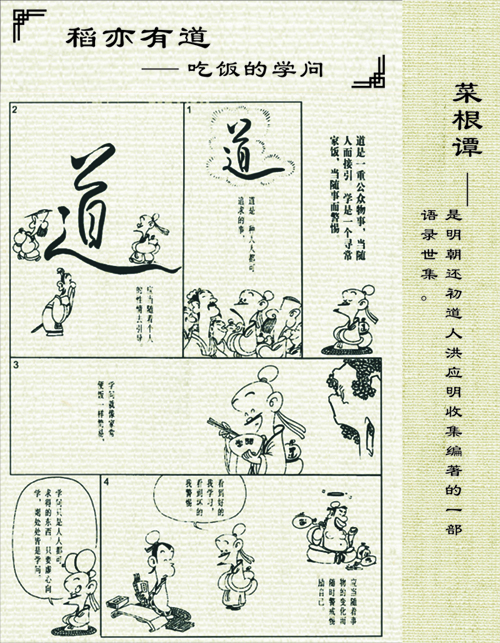 稻亦有道
——吃饭的学问
菜根谭——
是明朝还初道人洪应明收集编著的一部
语录世集。
道是一重公众物事，当随
人而接引 学是一个寻常
家饭，当随事而警惕。
1
道
道是一种人人都可
追求的事，
2
道
应当随着个人
的性情去引导
3
学问就像家常
便饭一样
4
看到好的
我学习，
看到坏的
我警惕。
应当随着事
物的变化而
随时警戒惕
励自己。
学问只是人人都可
求得的东西，只要虚心向
学，到处处皆是学问。